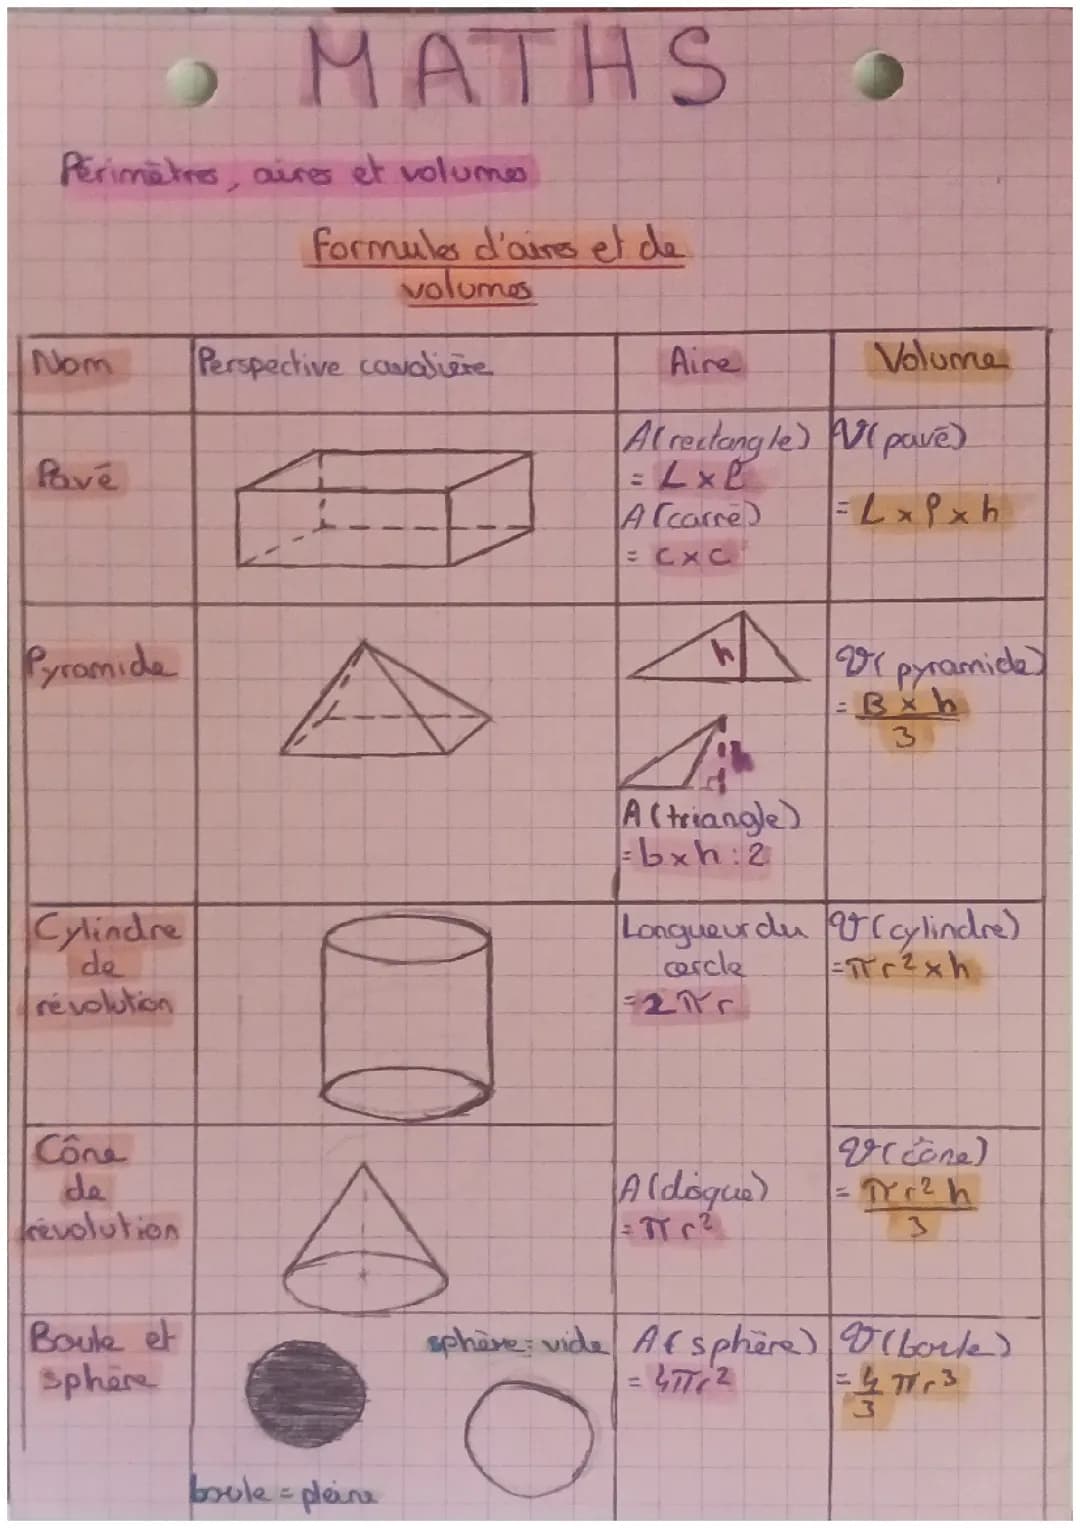 MATHS
Périmètres, aires et volumes
Formules d'aires et de
volumes
Nom
Perspective cavalière
Aire
Volume
Pavé
A(rectangle)
= L x l
A(carré)
= c x c
V(pavé)
= L x l x h
Pyramide
h
h
A(triangle)
= b x h : 2
V(pyramide)
= B x h
3
Cylindre
de
révolution
Longueur du
cercle
= 2πr
V(cylindre)
= πr² x h
Cône
de
révolution
A(disque)
= πr²
V(cône)
= πr² h
3
Boule et
sphère
sphère = vide
boule = pleine
A(sphère)
= 4πr²
V(boule)
= 4/3 πr³